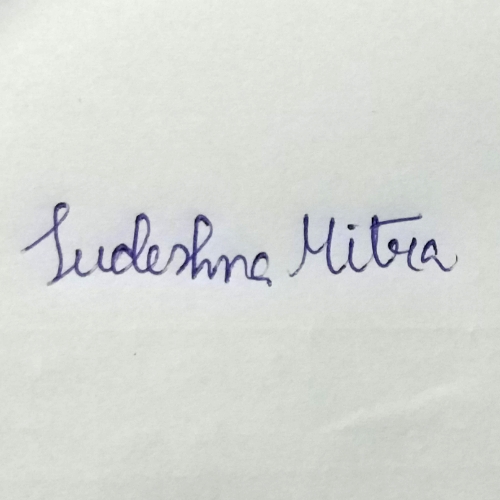 Sudeshna Mitra